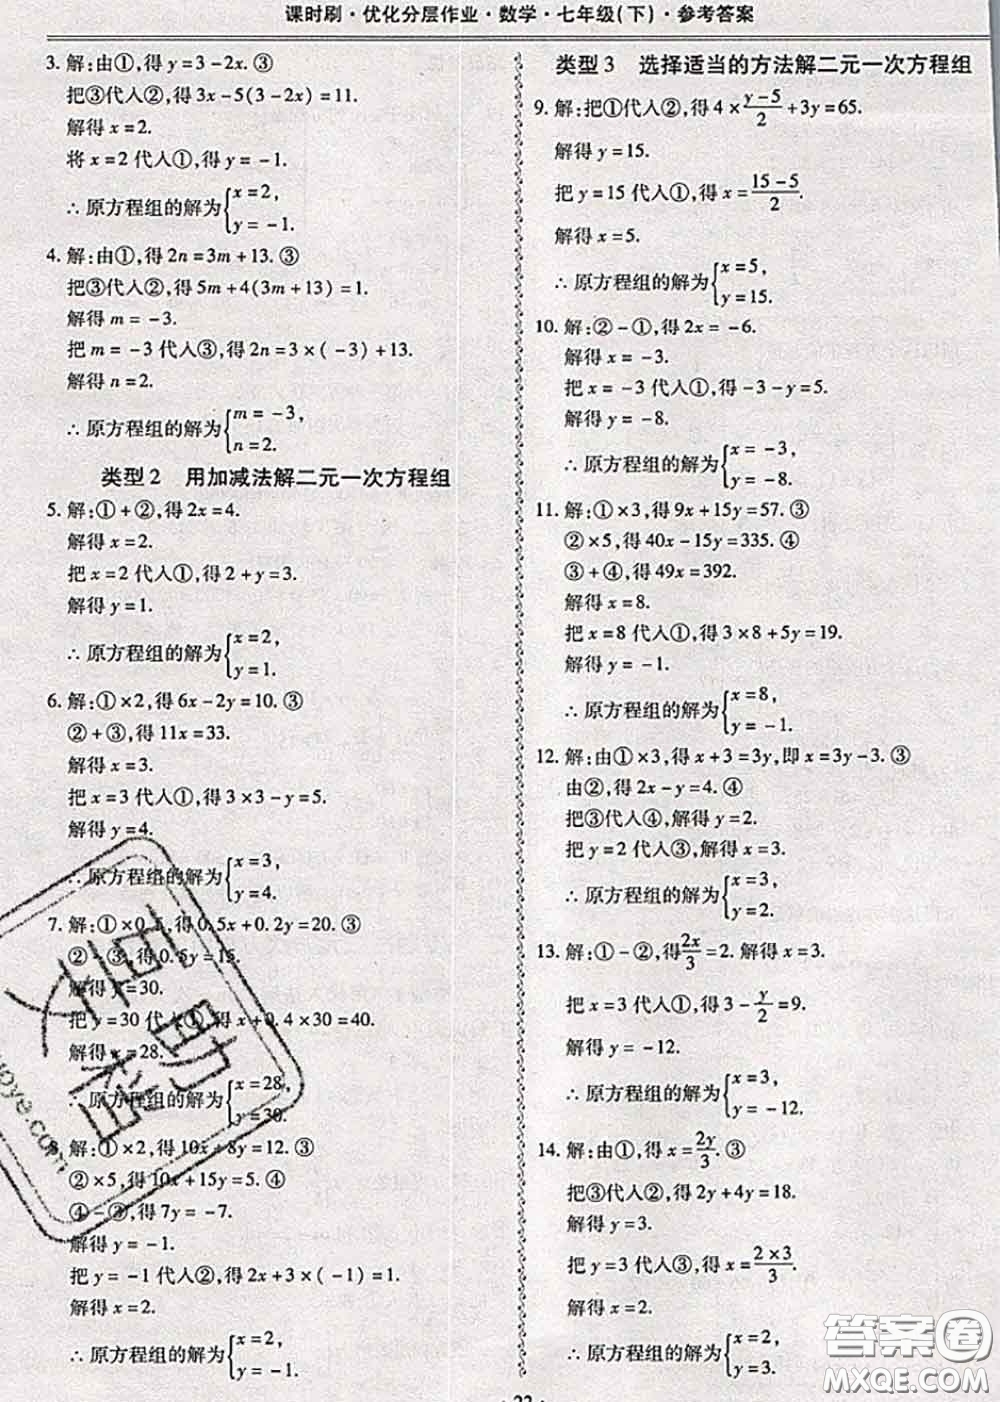 课时刷·优化分层作业·数学·七年级(下)·参考答案
3. 解:由①,得 y=3-2x. ③
把③代入②,得 3x-5(3-2x)=11.
解得 x=2.
将 x=2 代入①,得 y=-1.
∴ 原方程组的解为{x=2,
y=-1.
4. 解:由①,得 2n=3m+13. ③
把③代入②,得 5m+4(3m+13)=1.
解得 m=-3.
把 m=-3 代入③,得 2n=3×(-3)+13.
解得 n=2.
∴ 原方程组的解为{m=-3,
n=2.
类型 2 用加减法解二元一次方程组
5. 解:①+②,得 2x=4.
解得 x=2.
把 x=2 代入①,得 2+y=3.
解得 y=1.
∴ 原方程组的解为{x=2,
y=1.
6. 解:①×2,得 6x-2y=10. ③
②+③,得 11x=33.
解得 x=3.
把 x=3 代入①,得 3×3-y=5.
解得 y=4.
∴ 原方程组的解为{x=3,
y=4.
7. 解:①×0.5,得 0.5x+0.2y=20. ③
②-③,得 0.5y=15.
解得 y=30.
把 y=30 代入①,得 x+0.4×30=40.
解得 x=28.
∴ 原方程组的解为{x=28,
y=30.
8. 解:①×2,得 10x+8y=12. ③
②×5,得 10x+15y=5. ④
④-③,得 7y=-7.
解得 y=-1.
把 y=-1 代入②,得 2x+3×(-1)=1.
解得 x=2.
∴ 原方程组的解为{x=2,
y=-1.
类型 3 选择适当的方法解二元一次方程组
9. 解:把①代入②,得 4×(y-5)/2+3y=65.
解得 y=15.
把 y=15 代入①,得 x=(15-5)/2.
解得 x=5.
∴ 原方程组的解为{x=5,
y=15.
10. 解:②-①,得 2x=-6.
解得 x=-3.
把 x=-3 代入①,得 -3-y=5.
解得 y=-8.
∴ 原方程组的解为{x=-3,
y=-8.
11. 解:①×3,得 9x+15y=57. ③
②×5,得 40x-15y=335. ④
③+④,得 49x=392.
解得 x=8.
把 x=8 代入①,得 3×8+5y=19.
解得 y=-1.
∴ 原方程组的解为{x=8,
y=-1.
12. 解:由①×3,得 x+3=3y,即 x=3y-3. ③
由②,得 2x-y=4. ④
把③代入④,解得 y=2.
把 y=2 代入③,解得 x=3.
∴ 原方程组的解为{x=3,
y=2.
13. 解:①-②,得 2x/3=2. 解得 x=3.
把 x=3 代入①,得 3-y/2=9.
解得 y=-12.
∴ 原方程组的解为{x=3,
y=-12.
14. 解:由①,得 x=2y/3. ③
把③代入②,得 2y+4y=18.
解得 y=3.
把 y=3 代入③,得 x=(2×3)/3.
解得 x=2.
∴ 原方程组的解为{x=2,
y=3.
答案卷
MXQE.COM